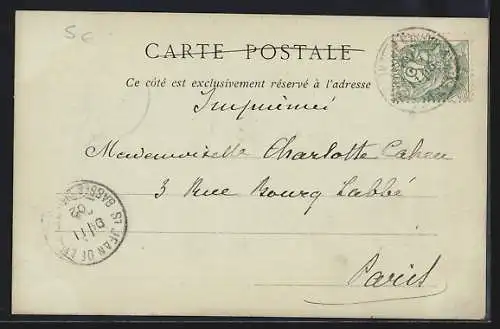 5c
CARTE POSTALE
Ce côté est exclusivement réservé à l'adresse
Imprimé
Mademoiselle Charlotte Cahen
3 Rue Bourg Labbé
Paris
ST JEAN DE
02